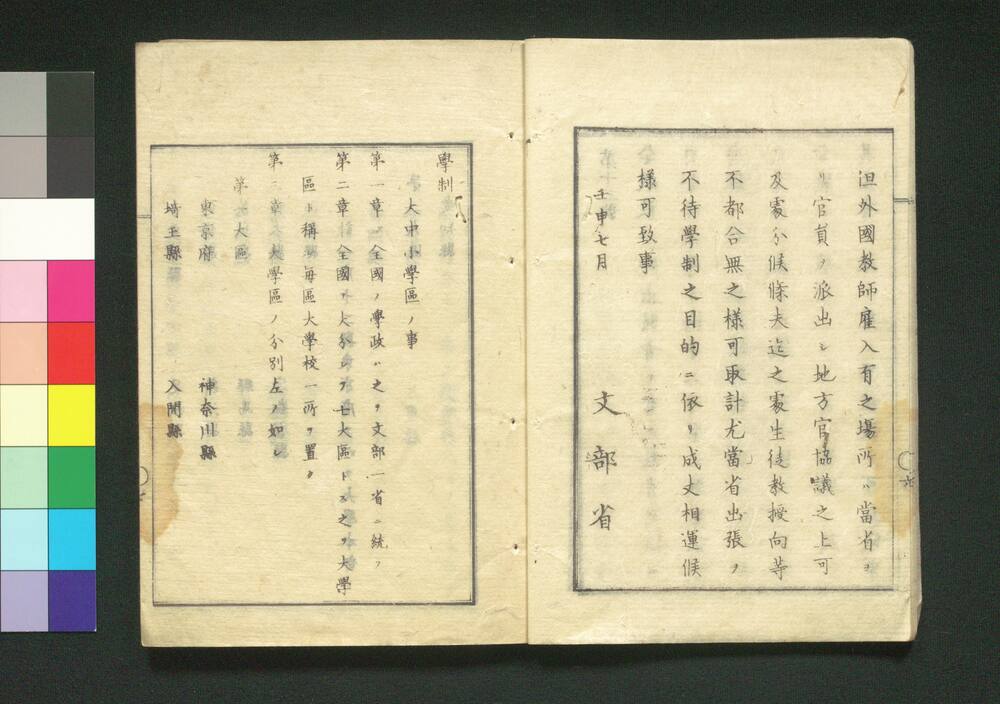 但外國教師雇入有之場所ハ當省ヨ
リ官員ヲ派出シ地方官協議之上可
及處分候條夫迄之處生徒教授向等
不都合無之樣可取計尤當省出張ヲ
不待學制之目的ニ依リ成丈相運候
樣可致事
壬申七月
文部省
學制
大中小學區ノ事
第一章 全國ノ學政ハ之ヲ文部一省ニ統フ
第二章 全國ヲ大分シテ七大區トス之ヲ大學
區ト稱毎區大學校一所ヲ置ク
第三章 大學區ノ分別左ノ如シ
第一大區
東京府 神奈川縣
埼玉縣 入間縣